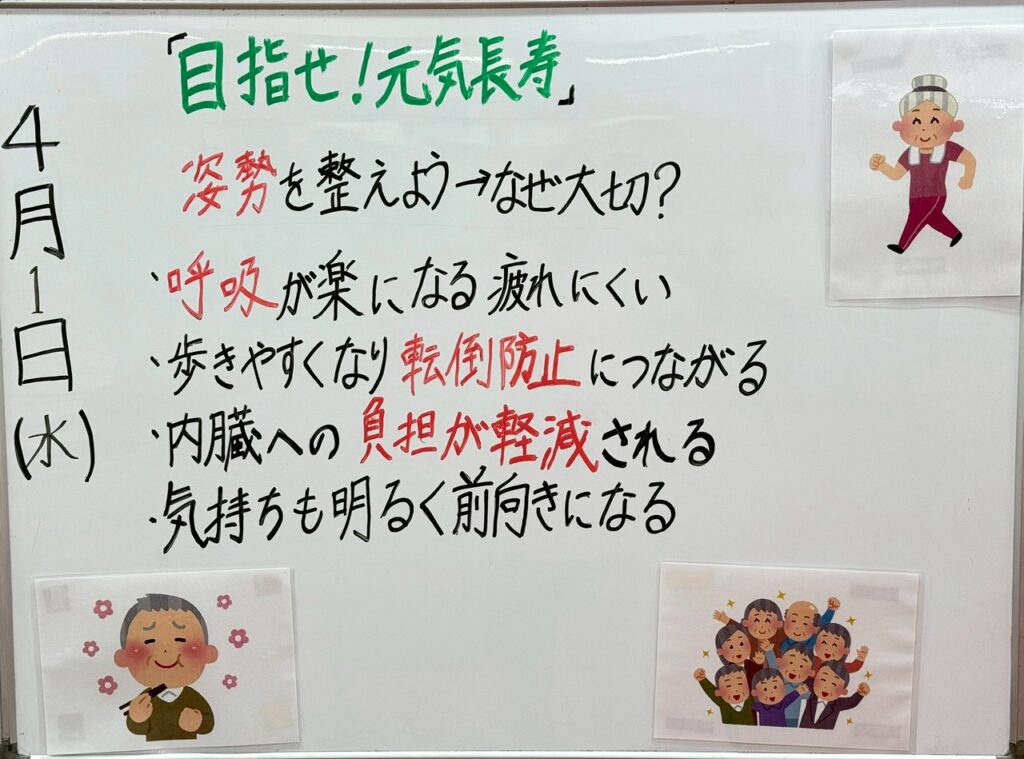 「目指せ!元気長寿」
4月1日(水)
姿勢を整えよう→なぜ大切?
・呼吸が楽になる 疲れにくい
・歩きやすくなり転倒防止につながる
・内臓への負担が軽減される
・気持ちも明るく前向きになる